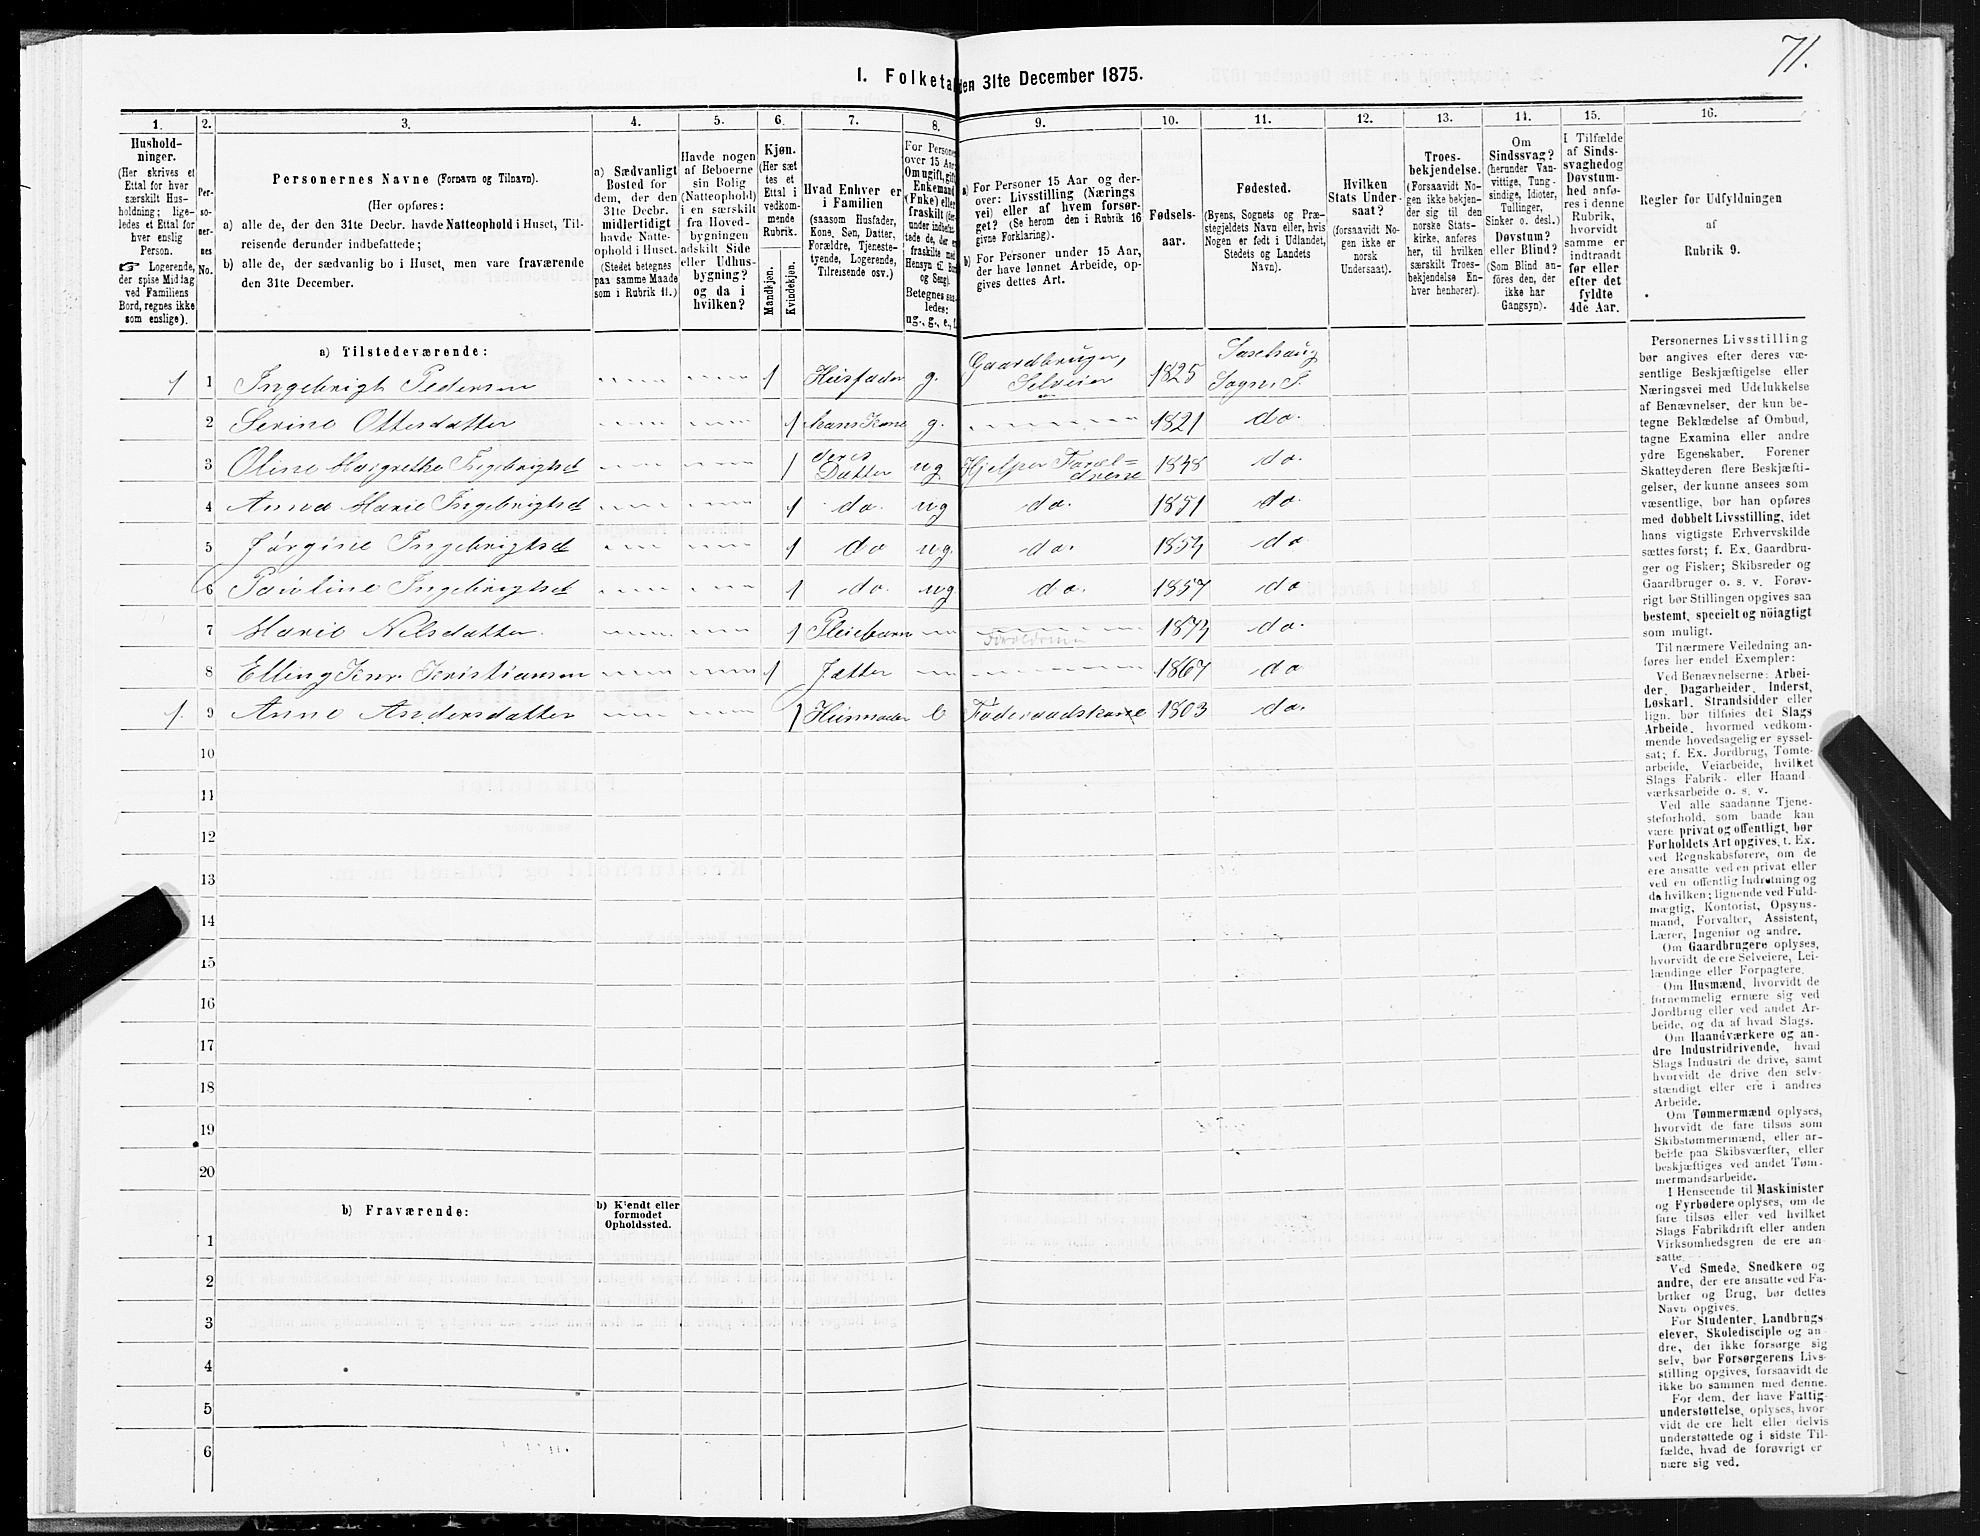 71.
I. Folketal den 31te December 1875.
1. 2. 3. 4. 5. 6. 7. 8. 9. 10. 11. 12. 13. 14. 15. 16.
Hushold-
ninger.
(Her skrives et
Ettal for hver
særskilt Hus-
holdning; lige-
ledes et Ettal for
hver enslig
Person.
☞ Logerende,
der spise Middag
ved Familiens
Bord, regnes ikke
som enslige).
Per-
so-
ner-
nes
No.
Personernes Navne (Fornavn og Tilnavn).
(Her opføres:
a) alle de, der den 31te Decbr. havde Natteophold i Huset, Til-
reisende derunder indbefattede;
b) alle de, der sædvanlig bo i Huset, men vare fraværende
den 31te December.
a) Sædvanligt
Bosted for
dem, der den
31te Decbr.
midlertidigt
havde Natte-
ophold i Huset
(Stedet betegnes
paa samme Maade
som i Rubrik 11.)
Havde nogen
af Beboerne
sin Bolig
(Natteophold)
i en særskilt
fra Hoved-
bygningen
adskilt Side
eller Udhus-
bygning?
og da i
hvilken?
Kjøn.
(Her sæt
tes et
Ettal i
vedkom-
mende
Rubrik.
Mandkjøn.
Kvindekjøn.
Hvad Enhver er
i Familien
(saasom Husfader,
Kone, Søn, Datter,
Forældre, Tjeneste-
tyende, Logerende,
Tilreisende osv.)
For Personer
over 15 Aar
Om ugift, gift
Enkemand
(Enke) eller
fraskilt
Betegnes saa-
ledes:
ug., g., e., f.
a) For Personer 15 Aar og der-
over: Livsstilling (Nærings
vei) eller af hvem forsør-
get? (Se herom den i Rubrik 16
givne Forklaring).
b) For Personer under 15 Aar,
der have lønnet Arbeide, op-
gives dettes Art.
Fødsels-
aar.
Fødested.
(Byens, Sognets og Præ-
stegjeldets Navn eller, hvis
Nogen er født i Udlandet,
Stedets og Landets
Navn).
Hvilken
Stats Under-
saat?
(forsaavidt No-
gen ikke er
norsk
Undersaat).
Troes-
bekjendelse.
(Forsaavidt No-
gen ikke bekjen-
der sig til den
norske Stats-
kirke, anføres
her, til hvilken
særskilt Troes-
bekjendelse En-
hver henhører).
Om
Sindssvag?
(herunder Van-
vittige, Tung-
sindige, Idioter,
Tullinger,
Sinker o. desl.)
Døvstum?
eller Blind?
(Som Blind an-
föres den, der
ikke har
Gangsyn).
I Tilfælde
af Sinds-
svaghed og
Døvstum-
hed anfø-
res i denne
Rubrik,
hvorvidt
samme er
indtraadt
før eller
efter det
fyldte
4de Aar.
Regler for Udfyldningen
af
Rubrik 9.
a) Tilstedeværende:
1 1 Ingebrigt Pedersen 1 Husfader g. Gaardbruger, Selveier 1825 Saxehaug Sogn, P.
2 Serine Ottesdatter 1 hans Kone g. 1821 do.
3 Oline Margrethe Ingebrigtsd 1 deres Datter ug Hjelper Foræl=drene 1848 do.
4 Anna Marie Ingebrigtsd 1 do. ug do. 1851 do
5 Jørgine Ingebrigtsd 1 do ug. do. 1854 do
6 Pauline Ingebrigtsd 1 do. ug do. 1857 do
7 Marie Nilsdatter. 1 Pleiebarn Forældrene 1873 do.
8 Elling Knr. Kristiansen 1 1867 do
1. 9 Anne Andersdatter 1 Husmoder e Føderaadskone 1803 do.
10
11
12
13
14
15
16
17
18
19
20
b) Fraværende:
b) Kjendt eller
formodet
Opholdssted.
1
2
3
4
5
6
Personernes Livsstilling
bør angives efter deres væ-
sentlige Beskjæftigelse eller
Næringsvei med Udelukkelse
af Benævnelser, der kun be-
tegne Beklædelse af Ombud,
tagne Examina eller andre
ydre Egenskaber. Forener
Skatteyderen flere Beskjæfti-
gelser, der kunne ansees som
væsentlige, bør han opføres
med dobbelt Livsstilling, idet
hans vigtigste Erhvervskilde
sættes først; f. Ex. Gaardbru-
ger og Fisker; Skibsreder og
Gaardbruger o. s. v. Forøv-
rigt bør Stillingen opgives saa
bestemt, specielt og nöiagtigt
som muligt.
Til nærmere Veiledning an-
føres her endel Exempler:
Ved Benævnelserne: Arbei-
der, Dagarbeider, Inderst,
Løskarl, Strandsidder eller
lign. bør tilføies det Slags
Arbeide, hvormed vedkom-
mende hovedsagelig er syssel-
sat; f. Ex. Jordbrug, Tomte-
arbeide, Veiarbeide, hvilket
Slags Fabrik- eller Haand-
værksarbeide o. s. v.
Ved alle saadanne Tjene-
steforhold, som baade kan
være privat og offentligt, bør
Forholdets Art opgives, t. Ex.
ved Regnskabsførere, om de
ere ansatte ved en privat eller
ved en offentlig Indretning og
da hvilken; lignende ved Fuld-
mægtig, Kontorist, Opsyns-
mand, Forvalter, Assistent,
Lærer, Ingeniør og andre.
Om Gaardbrugere oplyses,
hvorvidt de ere Selveiere, Lei-
lændinge eller Forpagtere.
Om Husmænd, hvorvidt de
fornemmelig ernære sig ved
Jordbrug eller ved andet Ar-
beide, og da af hvad Slags.
Om Haandværkere og an-
dre Industridrivende, hvad
Slags Industri de drive, samt
hvorvidt de drive den selv-
stændigt eller ere i andres
Arbeide.
Om Tømmermænd oplyses,
hvorvidt de fare tilsøs som
Skibstømmermænd, eller ar-
beide paa Skibsværfter, eller
beskjæftiges ved andet Tøm-
mermandsarbeide.
I Henseende til Maskinister
og Fyrbødere oplyses, om de
fare tilsøs eller ved hvilket
Slags Fabrikdrift eller anden
Virksomhedsgren de ere an-
satte.
Ved Smede, Snedkere og
andre, der ere ansatte ved Fa-
briker og Brug, bør dettes
Navn opgives.
For Studenter, Landbrugs
elever, Skoledisciple og an-
dre, der ikke forsørge sig
selv, bør Forsørgerens Livs-
stilling opgives, forsaavidt de
ikke bo sammen med denne.
For dem, der have Fattig-
understøttelse, oplyses, hvor-
vidt de ere helt eller delvis
understøttede og i sidste Til-
fælde, hvad de forøvrigt er
nære sig ved.